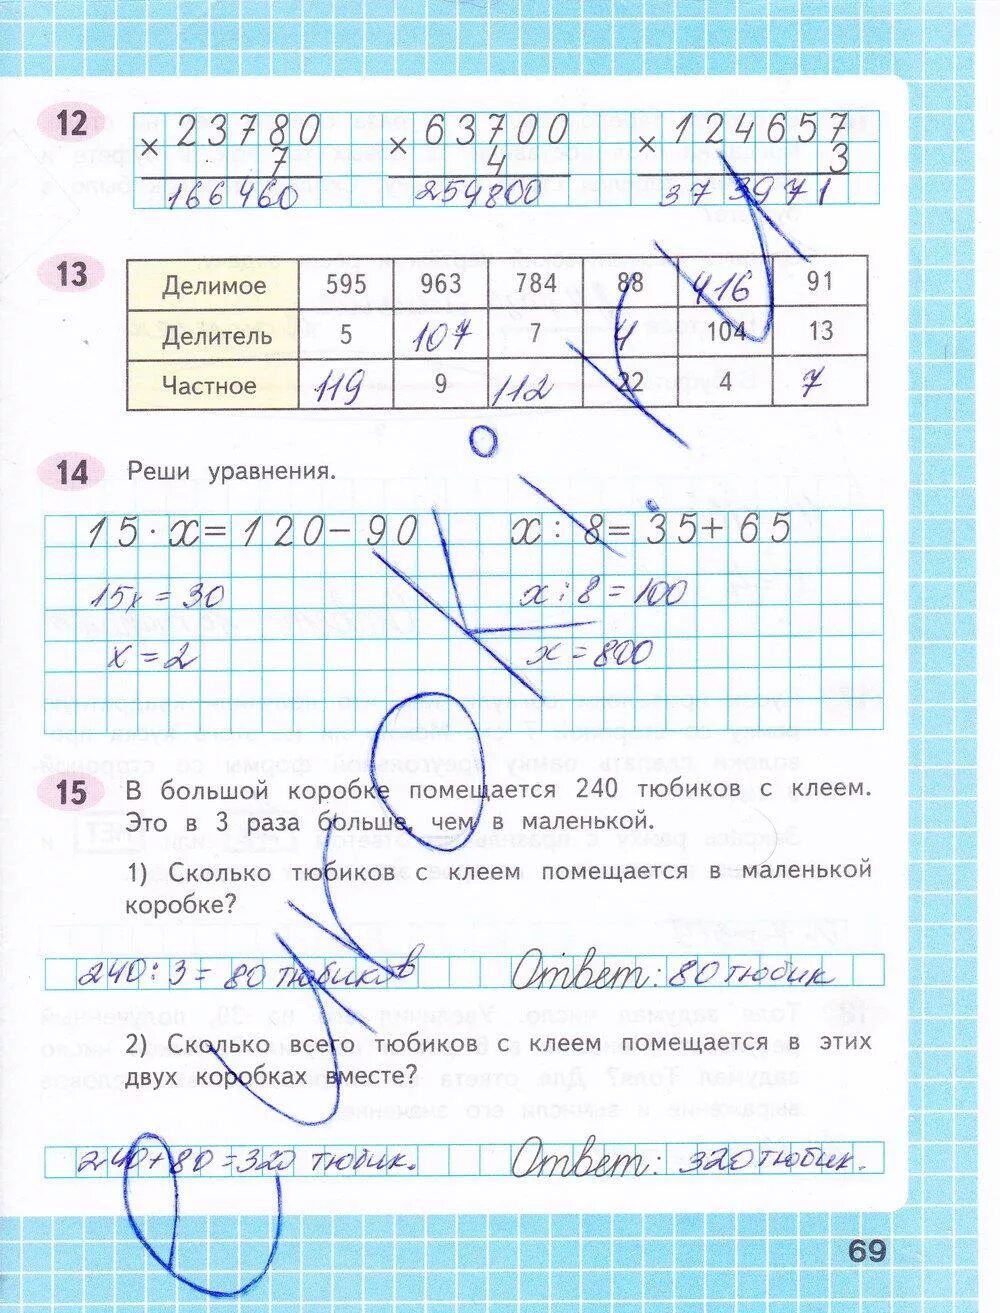 12
× 23780 × 63700 × 124657
7 4 3
166460 254800 373971
13
Делимое 595 963 784 88 416 91
Делитель 5 107 7 4 104 13
Частное 119 9 112 22 4 7
14 Реши уравнения.
15 · x = 120 − 90 x : 8 = 35 + 65
15x = 30 x : 8 = 100
x = 2 x = 800
15 В большой коробке помещается 240 тюбиков с клеем.
Это в 3 раза больше, чем в маленькой.
1) Сколько тюбиков с клеем помещается в маленькой
коробке?
240 : 3 = 80 тюбиков Ответ: 80 тюбик
2) Сколько всего тюбиков с клеем помещается в этих
двух коробках вместе?
240 + 80 = 320 тюбик. Ответ: 320 тюбик.
69